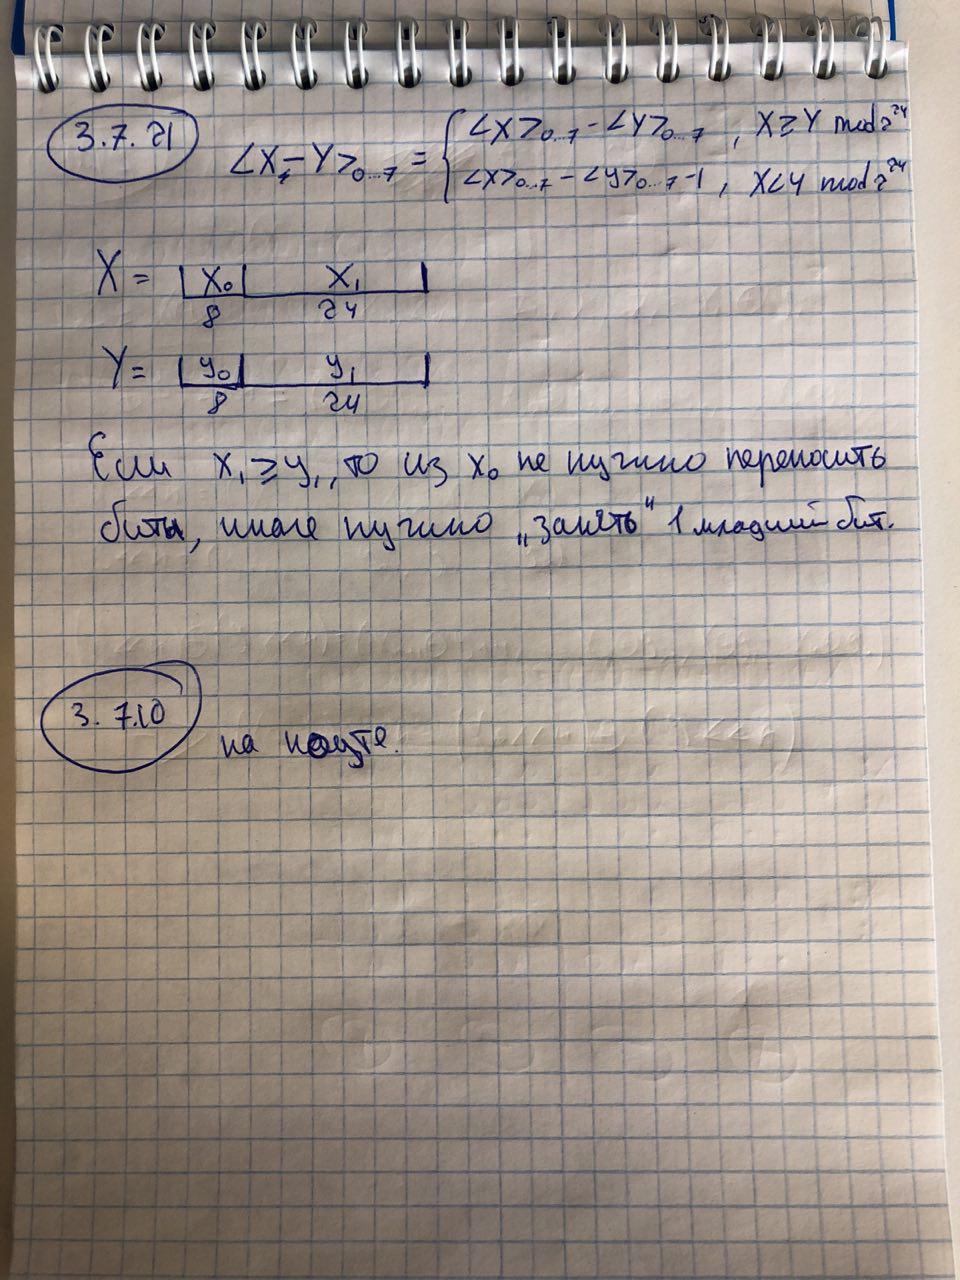 3.7.21
<X - Y>₀...₇ = { <X>₀...₇ - <Y>₀...₇ , X ≥ Y mod 2²⁴
<X>₀...₇ - <Y>₀...₇ - 1 , X < Y mod 2²⁴
X = | X₀ | X₁ |
8 24
Y = | y₀ | y₁ |
8 24
Если x₁ ≥ y₁, то из x₀ не нужно переносить
биты, иначе нужно „занять“ 1 младший бит.
3.7.10
на ноуте.